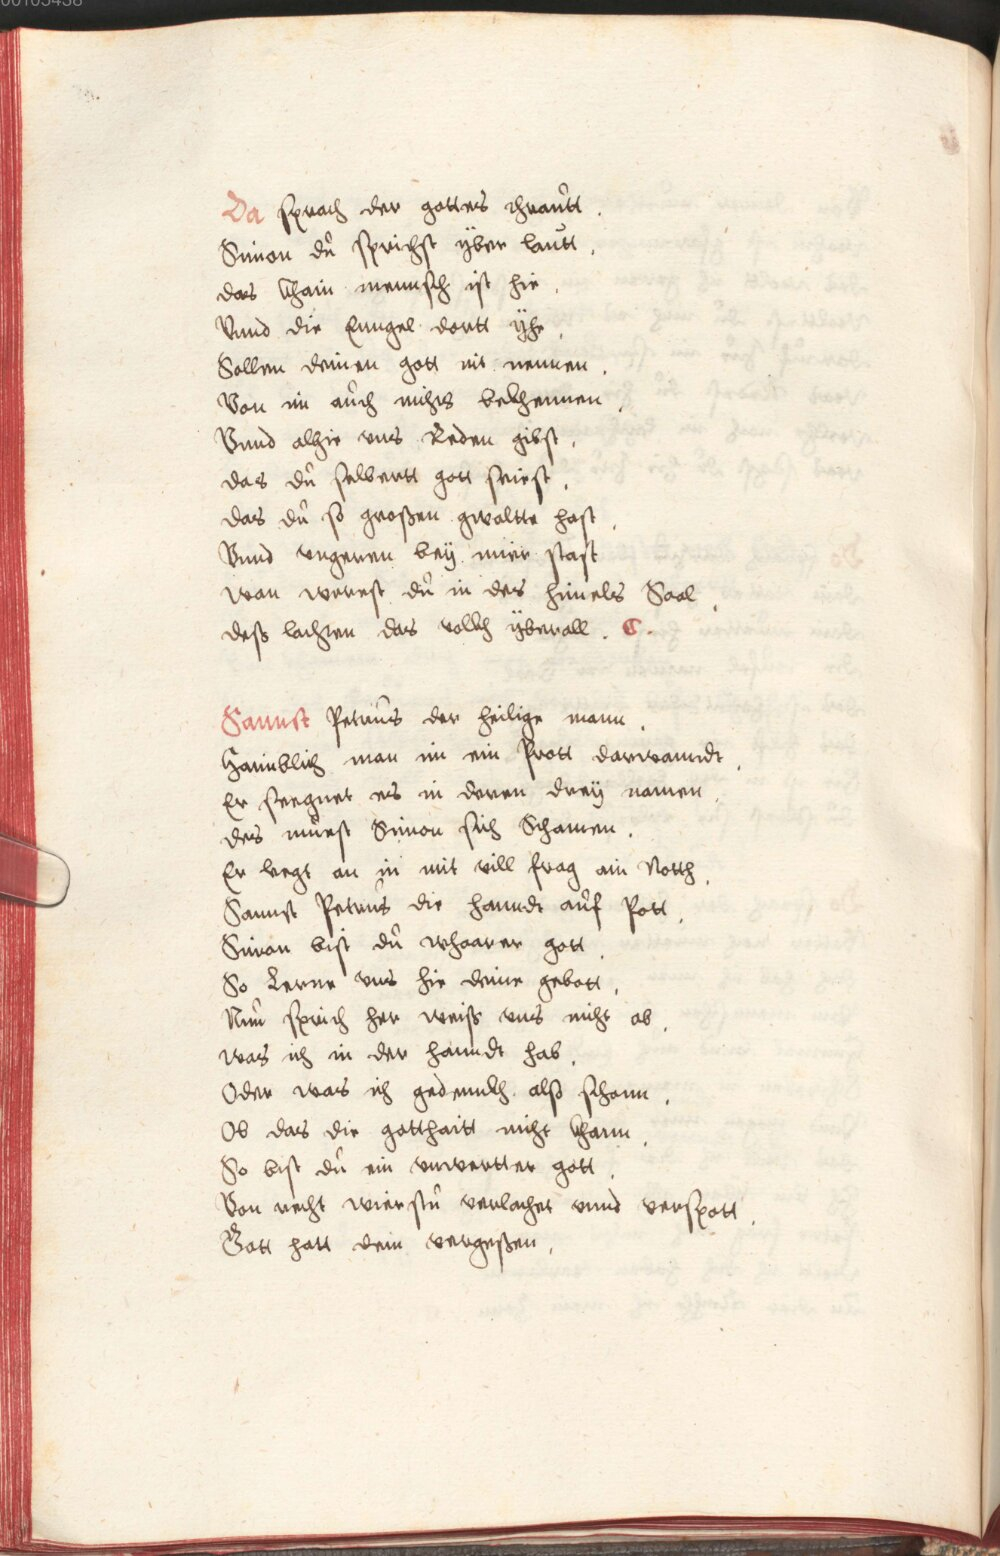 00105458
Da sprach der gottes thrautt.
Simon du sprichst yber lautt.
das khain mennsch ist hie.
Vnnd die Enngel dortt yhe.
Sollen deinen gott nit nennen.
Von im auch nichts bekhennen.
Vnnd alhie vns Reden gibst.
das du selbertt gott seiest.
das du so großen gwaltte hast.
Vnnd vngeren bey mier stast
wan werest du in des himels Saal.
deß lachten das vollkh yberall. C.
Sannct Petrus der heilige mann.
Haimblich man im ein Prott darwanndt.
Er seegnet es in deren drey namen.
des muest Simon sich Schamen.
Er legt an in mit vill frag ain Notth.
Sannct Petrus die hanndt auf Pott.
Simon bist du whaarer gott.
So Lerne vns hie deine gebott.
Nun sprich her weiß vns nicht ab.
was ich in der hanndt hab.
Oder was ich gedennkh alß schonn.
Ob das die gotthaitt nicht khann.
So bist du ein vnwertter gott.
Von recht wierstu verlachet vnnd verspott.
Gott hatt dein vergeßen.